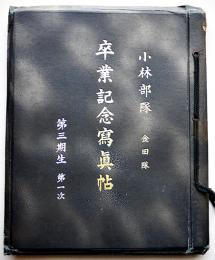 小林部隊 金田隊
卒業記念寫眞帖
第三期生 第一次